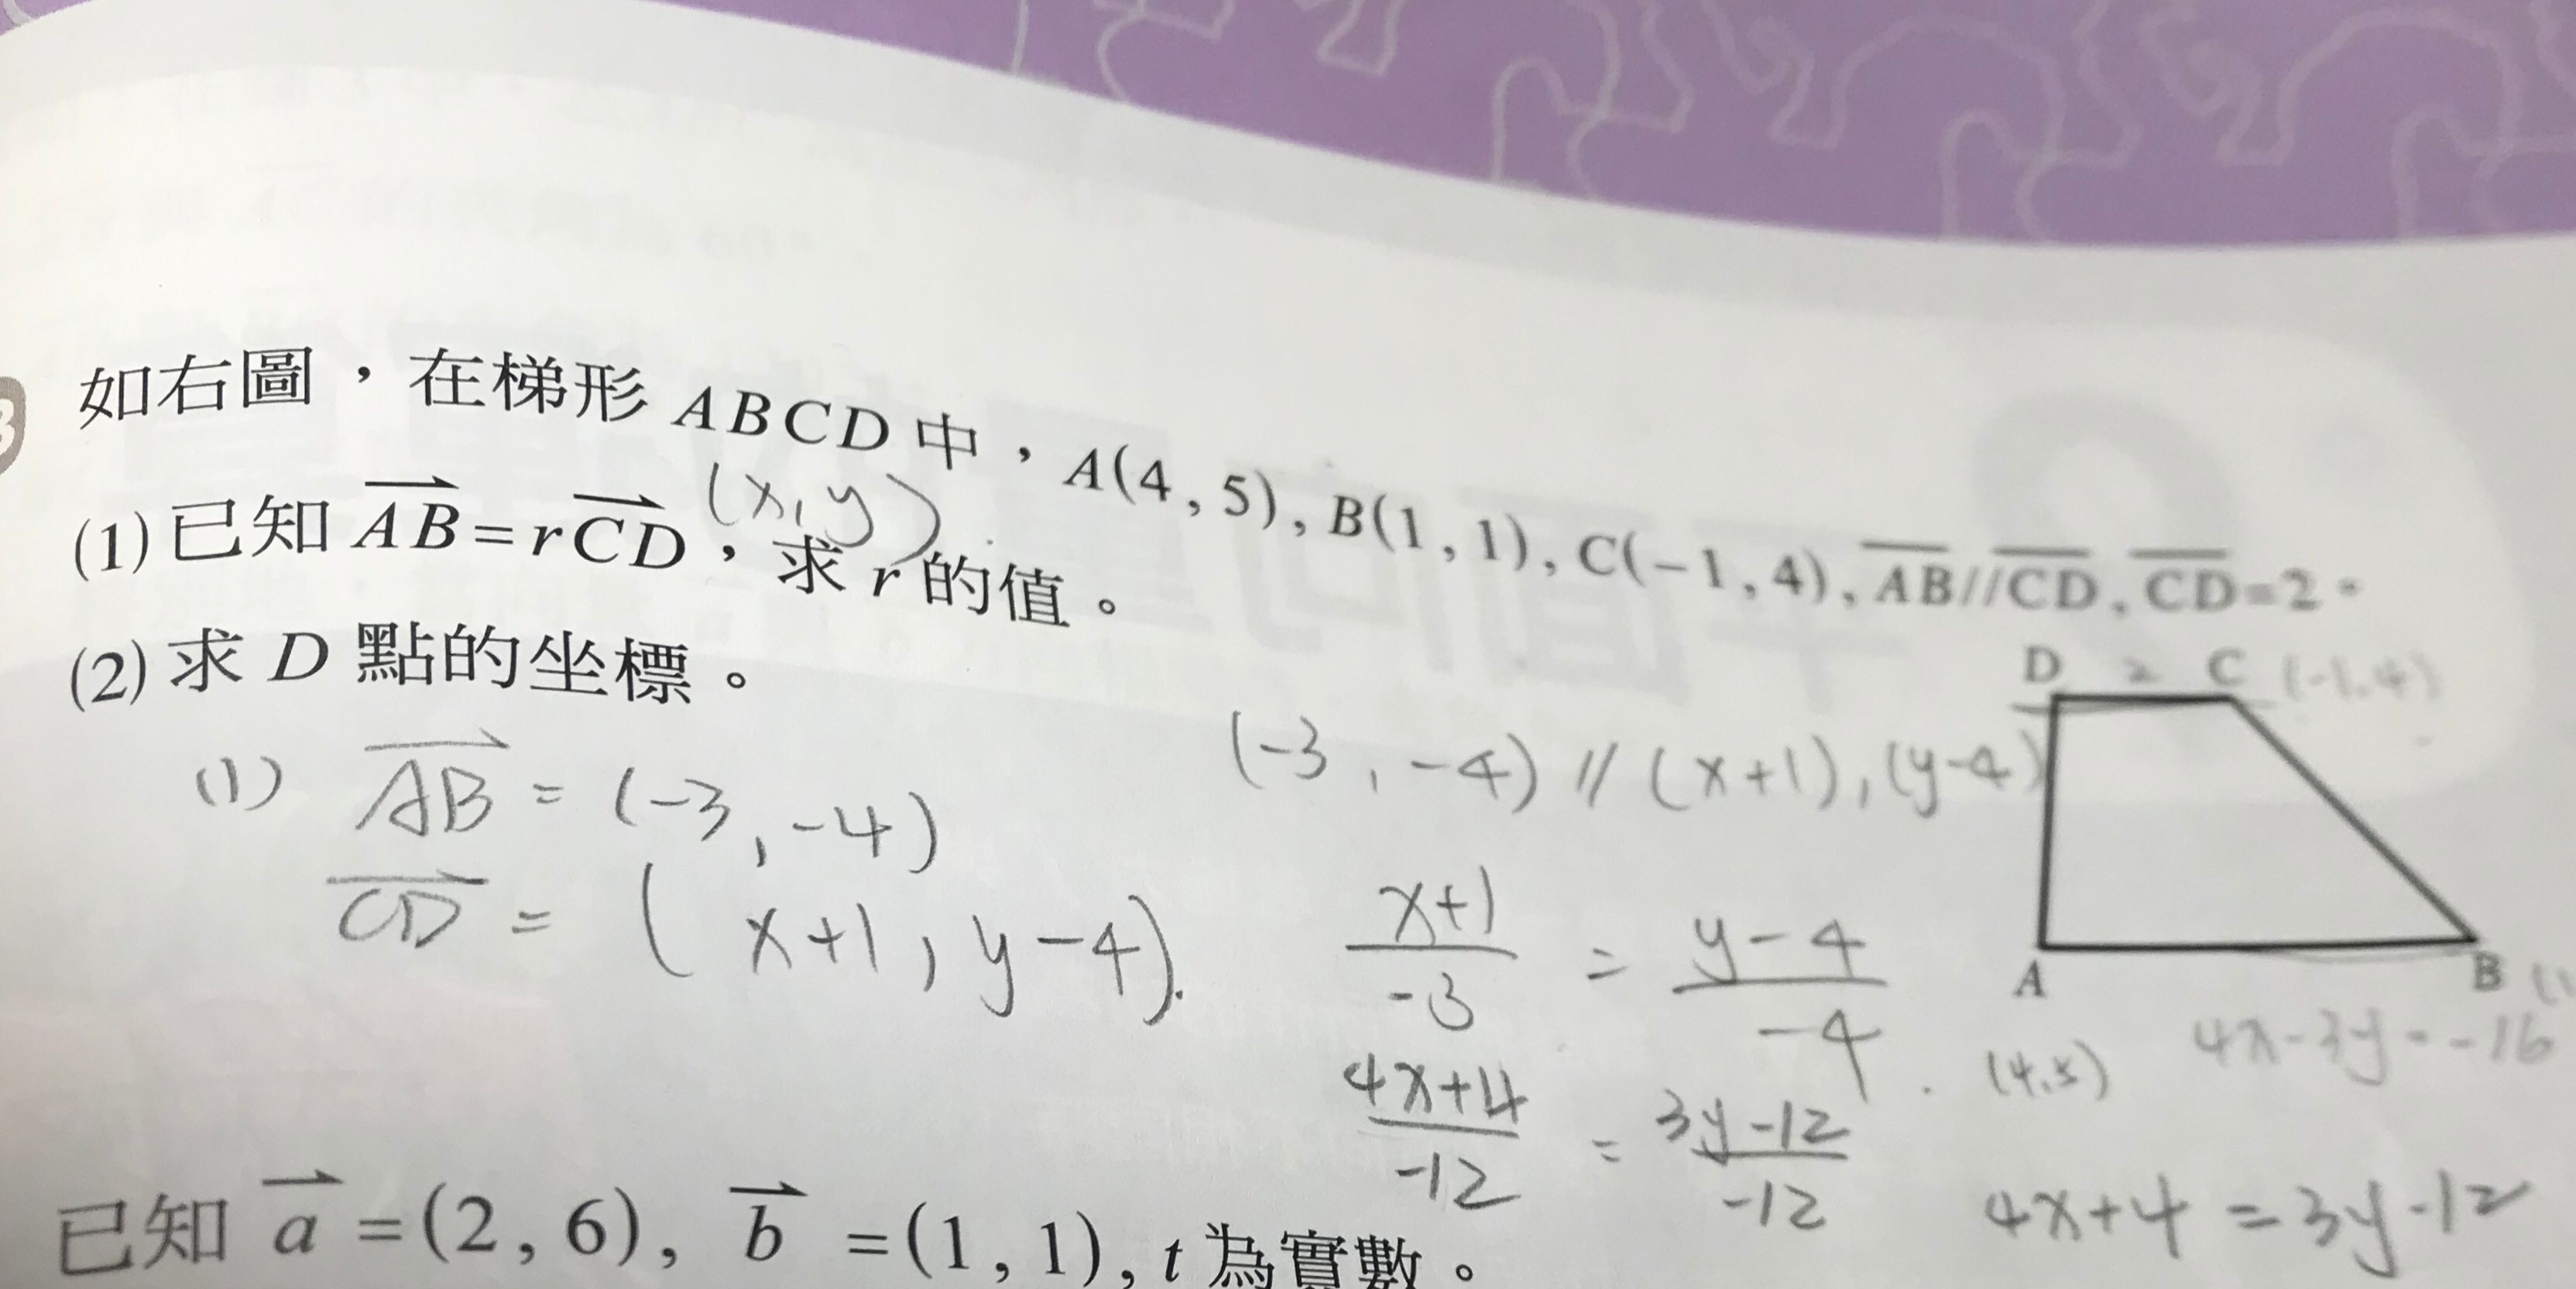 3
如右圖，在梯形ABCD中，A(4,5), B(1,1), C(-1,4), \overline{AB}//\overline{CD}, \overline{CD}=2。
(x,y)
(1)已知\overrightarrow{AB}=r\overrightarrow{CD}，求r的值。
(2)求D點的坐標。
D 2 C (-1,4)
(1) \overrightarrow{AB} = (-3, -4)
\overrightarrow{CD} = (x+1, y-4).
(-3, -4) // (x+1), (y-4)
\frac{x+1}{-3} = \frac{y-4}{-4}
A B
(4,5) 4x-3y=-16
\frac{4x+4}{-12} = \frac{3y-12}{-12}
4x+4=3y-12
已知\overrightarrow{a}=(2,6), \overrightarrow{b}=(1,1), t為實數。